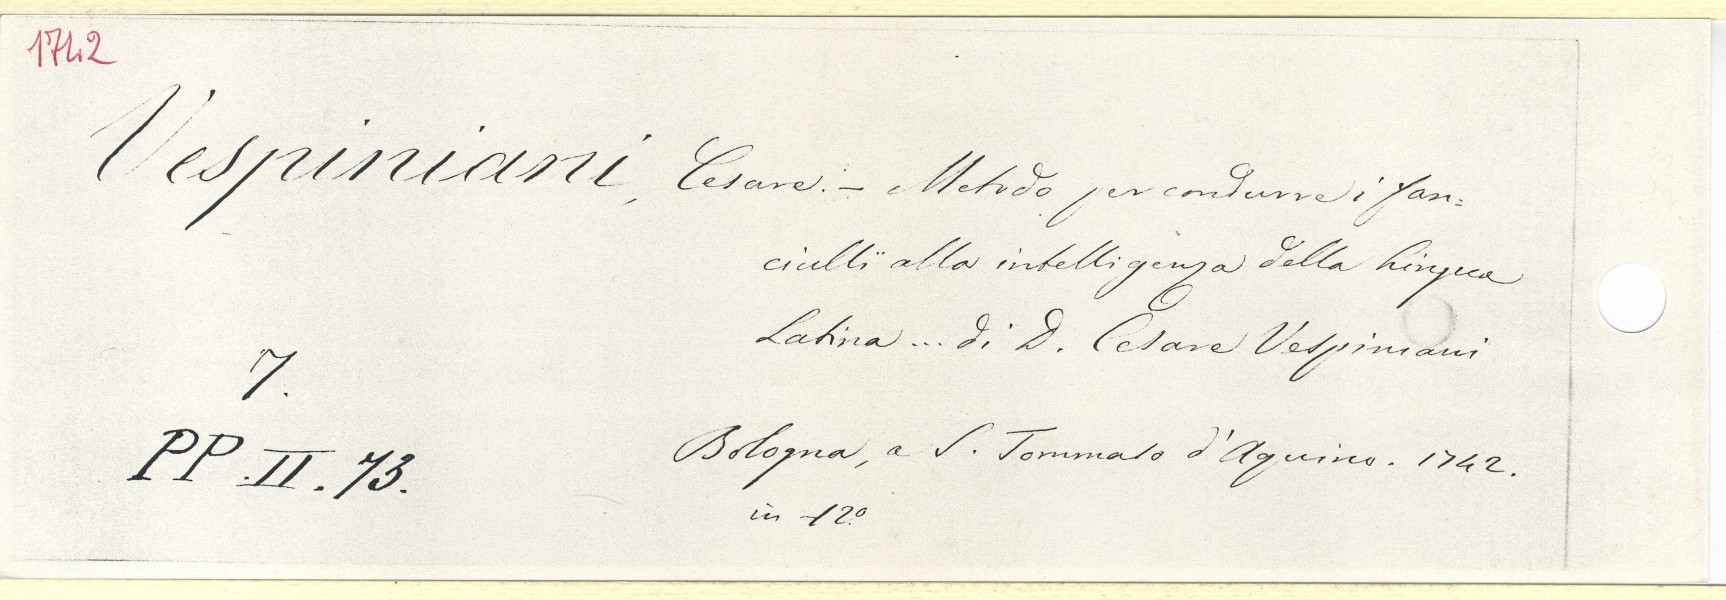 1742
Vespiniani, Cesare. - Metodo per condurre i fan=
ciulli alla intelligenza della Lingua
Latina ... di D. Cesare Vespiniani
7.
PP. II. 73.
Bologna, a S. Tommaso d'Aquino. 1742.
in 12º